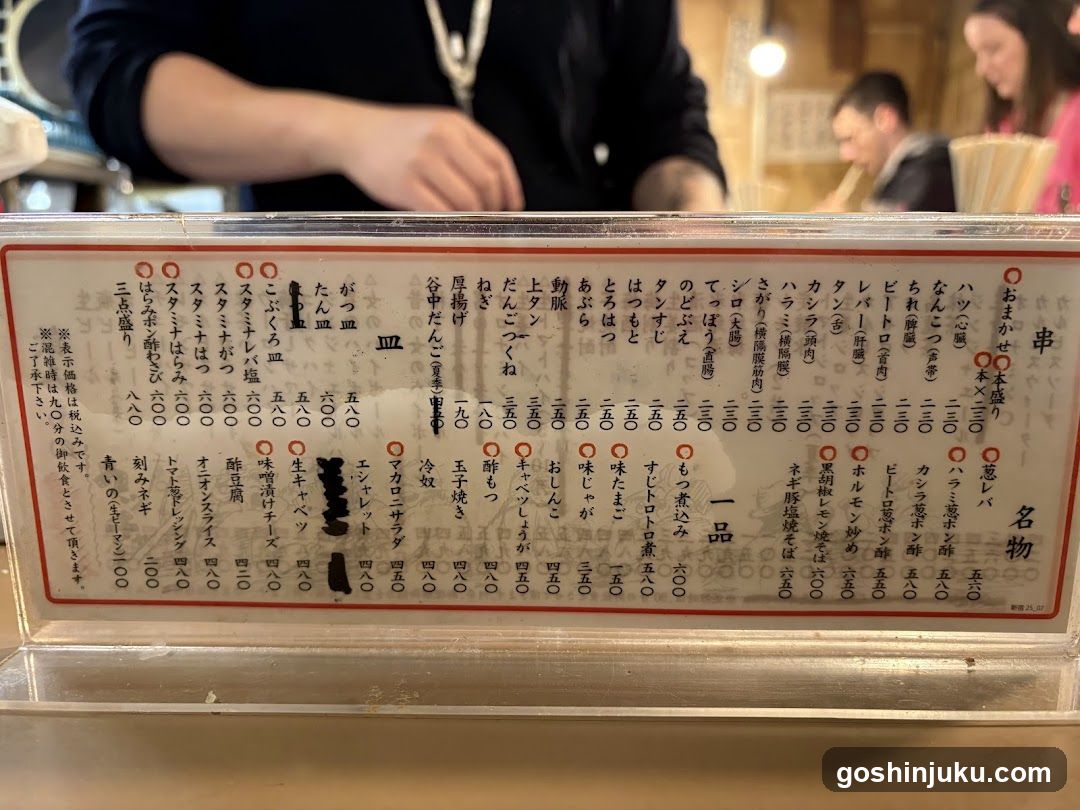 串
おまかせ 本盛り
本×二三〇
ハツ(心臓) 二三〇
なんこつ(声帯) 二三〇
ちれ(脾臓) 二三〇
ビートロ(首肉) 二三〇
レバー(肝臓) 二三〇
タン(舌) 二三〇
カシラ(頭肉) 二三〇
ハラミ(横隔膜) 二三〇
さがり(横隔膜筋肉) 二三〇
シロ(大腸) 二三〇
てっぽう(直腸) 二三〇
のどぶえ 二五〇
タンすじ 二五〇
はつもと 二五〇
とろはつ 二五〇
あぶら 二五〇
動脈 二五〇
上タン 三五〇
だんごつくね 三五〇
ねぎ 一八〇
厚揚げ 一九〇
谷中だんご(夏季)
皿
がつ皿 五八〇
たん皿 六〇〇
皿 五八〇
こぶくろ皿 五八〇
スタミナレバ塩 六〇〇
スタミナがつ 六〇〇
スタミナはつ 六〇〇
スタミナはらみ 六〇〇
はらみポン酢わさび 六〇〇
三点盛り 八八〇
※表示価格は税込みです。
※混雑時は九〇分の御飲食とさせて頂きます。
ご了承下さい。
名物
葱レバ 五六〇
ハラミ葱ポン酢 五八〇
カシラ葱ポン酢 五八〇
ビートロ葱ポン酢 五五〇
ホルモン炒め 六五〇
黒胡椒レモン焼そば 六〇〇
ネギ豚塩焼そば 六五〇
一品
もつ煮込み 六〇〇
すじトロトロ煮 五八〇
味たまご 一五〇
味じゃが 三五〇
おしんこ 四五〇
キャベツしょうが 四五〇
酢もつ 四八〇
玉子焼き 四八〇
冷奴 四八〇
マカロニサラダ 四五〇
エシャレット 四八〇
生キャベツ 四八〇
味噌漬けチーズ 四八〇
酢豆腐 四二〇
オニオンスライス 四八〇
トマト葱ドレッシング 四八〇
刻みネギ 二〇〇
青いの(生ピーマン) 二〇〇
新宿 25_07
goshinjuku.com